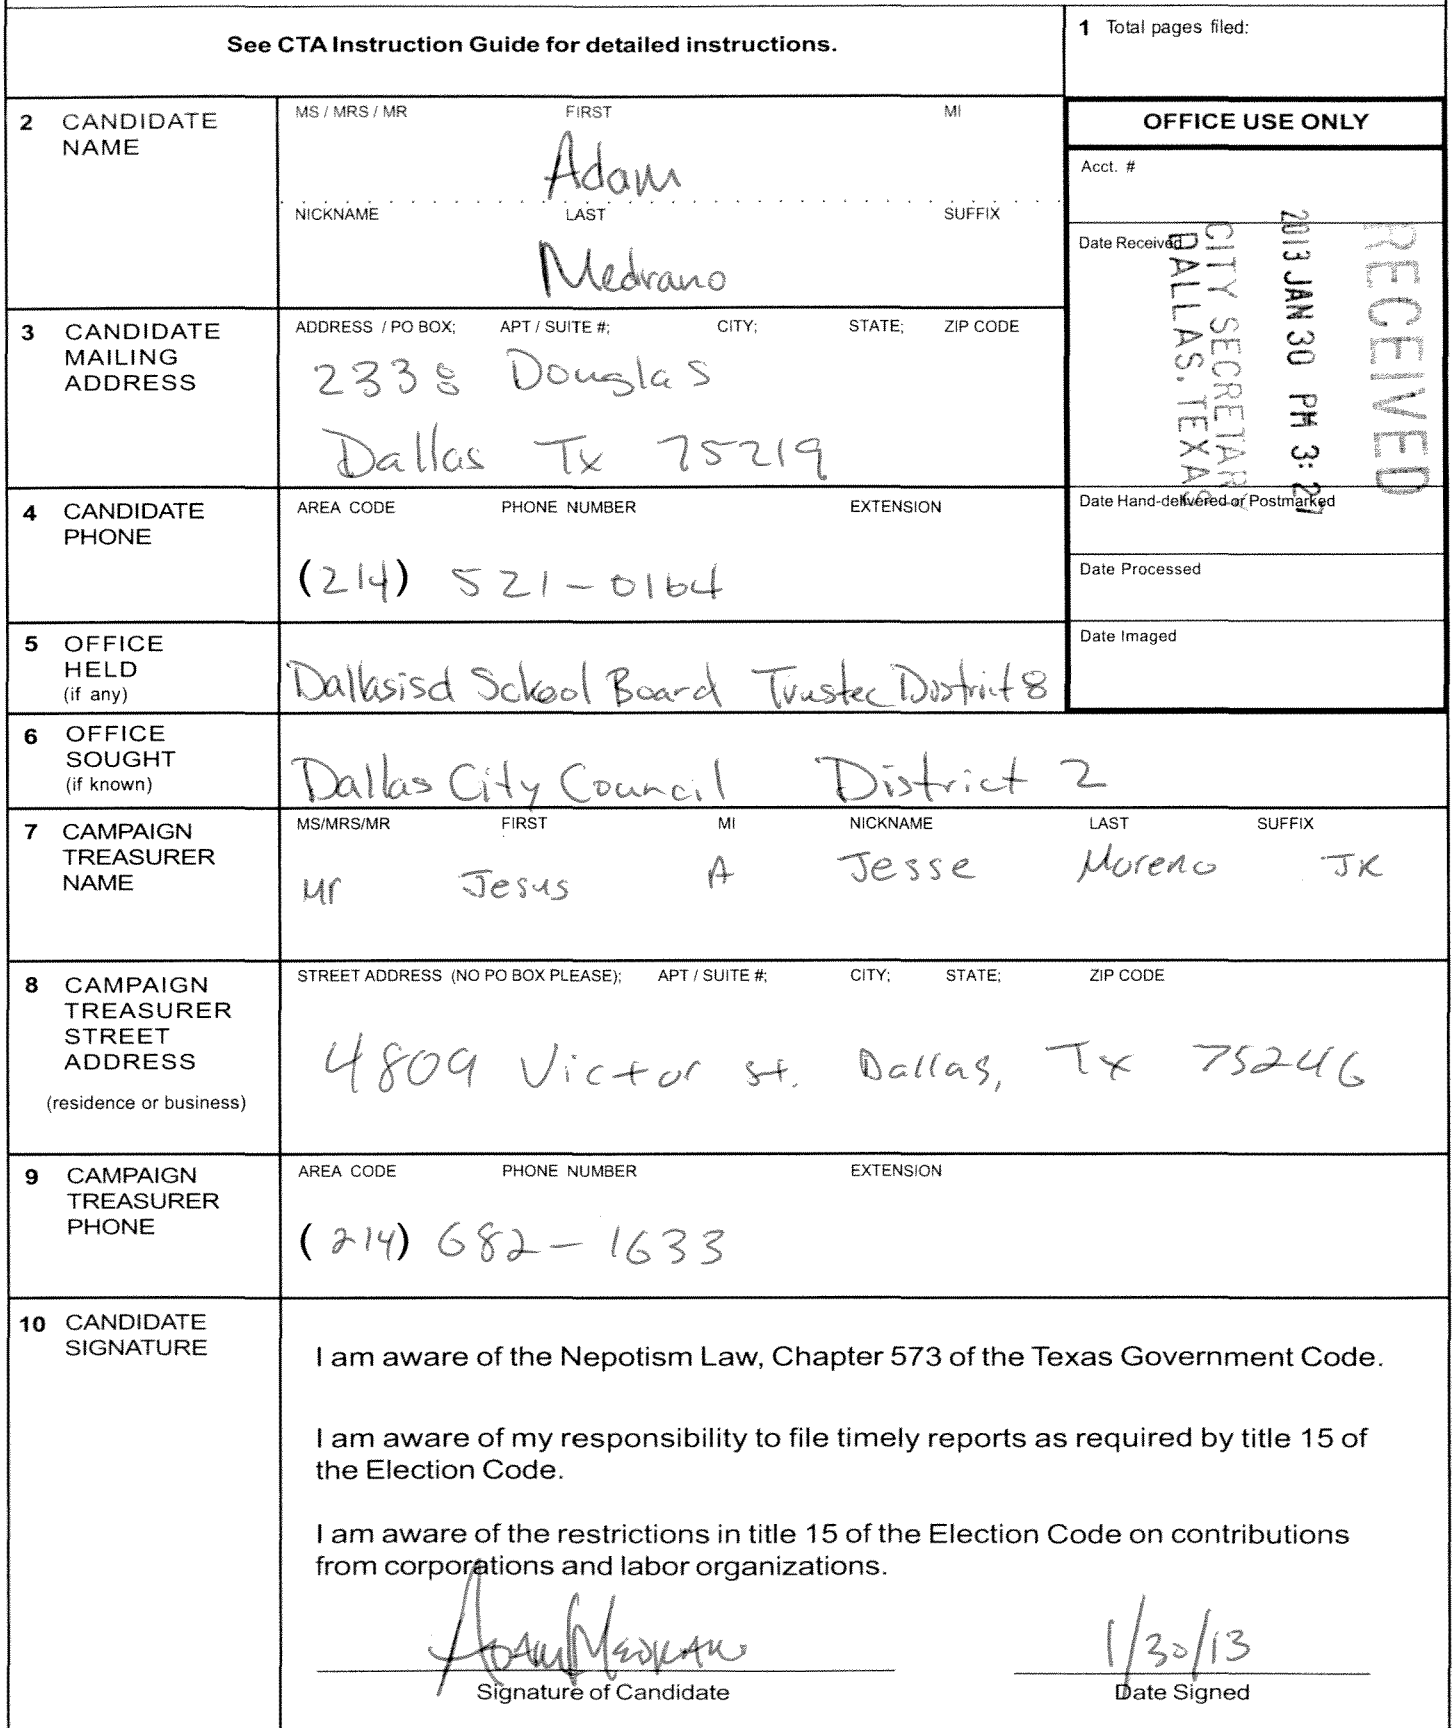 See CTA Instruction Guide for detailed instructions.
1 Total pages filed:
2 CANDIDATE NAME
MS / MRS / MR FIRST MI
Adam
NICKNAME LAST SUFFIX
Medrano
OFFICE USE ONLY
Acct. #
Date Received
RECEIVED
2013 JAN 30 PM 3:27
CITY SECRETARY
DALLAS, TEXAS
Date Hand-delivered or Postmarked
Date Processed
Date Imaged
3 CANDIDATE MAILING ADDRESS
ADDRESS / PO BOX; APT / SUITE #; CITY; STATE; ZIP CODE
2338 Douglas
Dallas Tx 75219
4 CANDIDATE PHONE
AREA CODE PHONE NUMBER EXTENSION
(214) 521-0164
5 OFFICE HELD (if any)
Dallasisd School Board Trustee District 8
6 OFFICE SOUGHT (if known)
Dallas City Council District 2
7 CAMPAIGN TREASURER NAME
MS/MRS/MR FIRST MI NICKNAME LAST SUFFIX
Mr Jesus A Jesse Moreno JR
8 CAMPAIGN TREASURER STREET ADDRESS (residence or business)
STREET ADDRESS (NO PO BOX PLEASE); APT / SUITE #; CITY; STATE; ZIP CODE
4809 Victor st. Dallas, Tx 75246
9 CAMPAIGN TREASURER PHONE
AREA CODE PHONE NUMBER EXTENSION
(214) 682-1633
10 CANDIDATE SIGNATURE
I am aware of the Nepotism Law, Chapter 573 of the Texas Government Code.
I am aware of my responsibility to file timely reports as required by title 15 of
the Election Code.
I am aware of the restrictions in title 15 of the Election Code on contributions
from corporations and labor organizations.
Adam Medrano 1/30/13
Signature of Candidate Date Signed